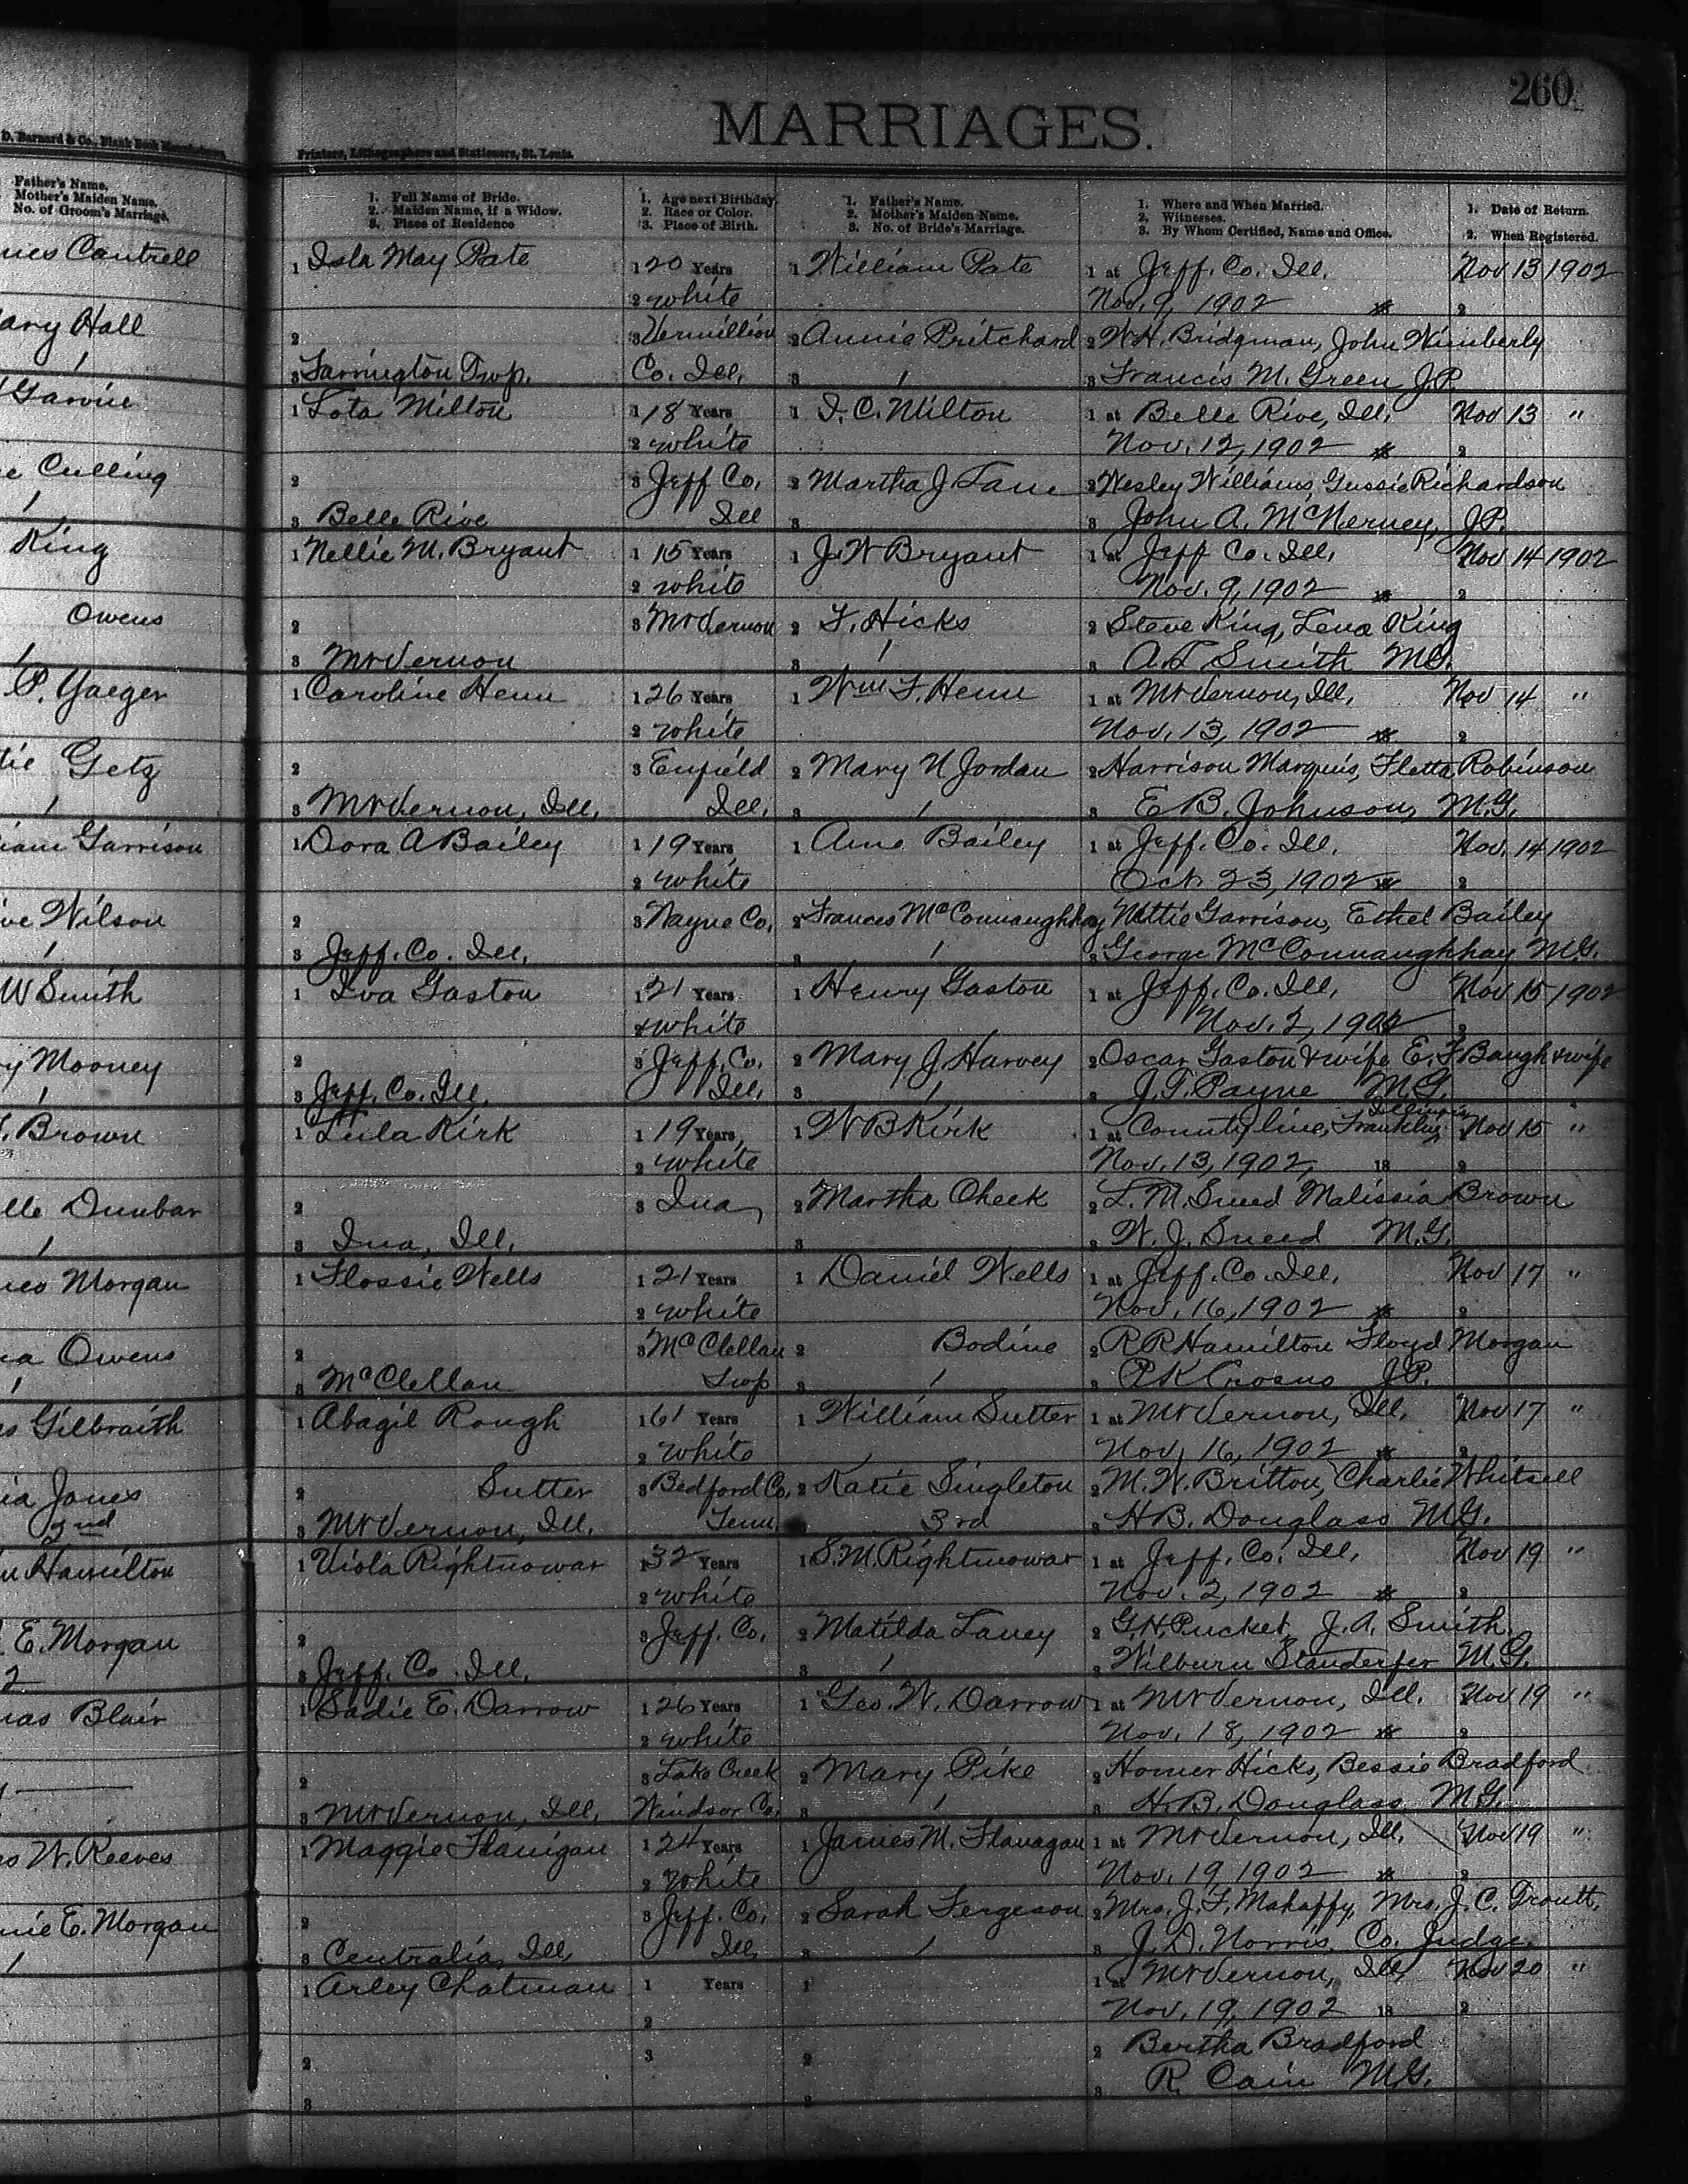 260
MARRIAGES.
D. Barnard & Co., Blank Book Manufacturers,
Printers, Lithographers and Stationers, St. Louis.
Father's Name.
Mother's Maiden Name.
No. of Groom's Marriage.
1. Full Name of Bride.
2. Maiden Name, if a Widow.
3. Place of Residence
1. Age next Birthday.
2. Race or Color.
3. Place of Birth.
1. Father's Name.
2. Mother's Maiden Name.
3. No. of Bride's Marriage.
1. Where and When Married.
2. Witnesses.
3. By Whom Certified, Name and Office.
1. Date of Return.
2. When Registered.
Cantrell 1 Isla May Pate 1 20 Years 1 William Pate 1 at Jeff. Co. Ill. Nov 13 1902
2 white Nov. 9, 1902 2
Hall 2 3 Vermillion 2 Annie Pritchard 2 W.H. Bridgman, John Wimberly
1 3 Farrington Twp. Co. Ill. 3 1 3 Francis M. Green J.P.
Garvie 1 Lota Milton 1 18 Years 1 I. C. Milton 1 at Belle Rive, Ill. Nov 13 "
2 white Nov. 12, 1902 2
Culling 2 3 Jeff Co. 2 Martha J Lane 2 Wesley Williams, Gussie Richardson
1 3 Belle Rive Ill 3 3 John A. McNerney, J.P.
King 1 Nellie M. Bryant 1 15 Years 1 J. W Bryant 1 at Jeff Co. Ill. Nov 14 1902
2 white Nov. 9, 1902 2
Owens 2 3 Mt Vernon 2 F. Hicks 2 Steve King, Lena King
1 3 Mt Vernon 3 1 3 A. T. Smith M.G.
P. Yaeger 1 Caroline Henn 1 26 Years 1 Wm F. Henn 1 at Mt Vernon, Ill. Nov 14 "
2 white Nov. 13, 1902 2
Getz 2 3 Enfield 2 Mary N Jordan 2 Harrison Marquis, Fletta Robinson
1 3 Mt Vernon, Ill. Ill. 3 1 3 E. B. Johnson, M.G.
Garrison 1 Dora A Bailey 1 19 Years 1 Bailey 1 at Jeff. Co. Ill. Nov. 14 1902
2 white Oct. 23, 1902 2
Wilson 2 3 Wayne Co. 2 Frances McConnaughhay Nettie Garrison, Ethel Bailey
1 3 Jeff. Co. Ill. 3 1 3 George McConnaughhay M.G.
W Smith 1 Iva Gaston 1 21 Years 1 Henry Gaston 1 at Jeff. Co. Ill. Nov 15 1902
2 white Nov. 2, 1902 2
Mooney 2 3 Jeff. Co. 2 Mary J. Harvey 2 Oscar Gaston & wife E. F Baugh & wife
1 3 Jeff. Co. Ill. Ill. 3 1 3 J. T. Payne M.G.
Illinois
Brown 1 Lula Kirk 1 19 Years 1 W B Kirk 1 at County line, Franklin Nov 15 "
2 white Nov. 13, 1902, 18 2
Dunbar 2 3 Ina 2 Martha Cheek 2 L. M. Sneed Malissia Brown
1 3 Ina, Ill. 3 3 W. J. Sneed M.G.
Morgan 1 Flossie Wells 1 21 Years 1 Daniel Wells 1 at Jeff. Co. Ill. Nov 17 "
2 white Nov. 16, 1902 2
Owens 2 3 McClellan 2 Bodine 2 R R Hamilton Floyd Morgan
1 3 McClellan Twp 3 1 3 J.P.
Gilbraith 1 Abagil Rough 1 61 Years 1 William Sutter 1 at Mt Vernon, Ill. Nov 17 "
2 white Nov. 16, 1902 2
Jones 2 Sutter 3 Bedford Co. 2 Katie Singleton 2 M. W. Britton, Charlie Whitsell
2nd 3 Mt Vernon, Ill. Tenn. 3rd 3 H B. Douglass M.G.
Hamilton 1 Viola Rightnowar 1 32 Years 1 S. M. Rightnowar 1 at Jeff. Co. Ill. Nov 19 "
2 white Nov. 2, 1902 2
E. Morgan 2 3 Jeff. Co. 2 Matilda Laney 2 G. H. Pucket, J. A. Smith.
2 3 Jeff. Co. Ill. 3 1 3 Wilburn Standerfer M.G.
Blair 1 Sadie E. Darrow 1 26 Years 1 Geo. W. Darrow 1 at Mt Vernon, Ill. Nov 19 "
2 white Nov. 18, 1902 2
2 3 Lake Creek 2 Mary Pike 2 Homer Hicks, Bessie Bradford
3 Mt Vernon, Ill. Windsor Co. 3 1 3 H. B. Douglass M.G.
W. Reeves 1 Maggie Flanigan 1 24 Years 1 James M. Flanagan 1 at Mt Vernon, Ill. Nov 19 "
2 white Nov. 19 1902 2
E. Morgan 2 3 Jeff. Co. 2 Sarah Fergeson 2 Mrs. J. F. Mahaffy, Mrs. J. C. Troutt.
1 3 Centralia, Ill. Ill. 3 1 3 J. D. Norris, Co. Judge.
1 Arley Chatman 1 Years 1 1 at Mt Vernon, Ill. Nov 20 "
2 Nov. 19, 1902 18 2
2 3 2 2 Bertha Bradford
3 3 3 R. Cain M.G.